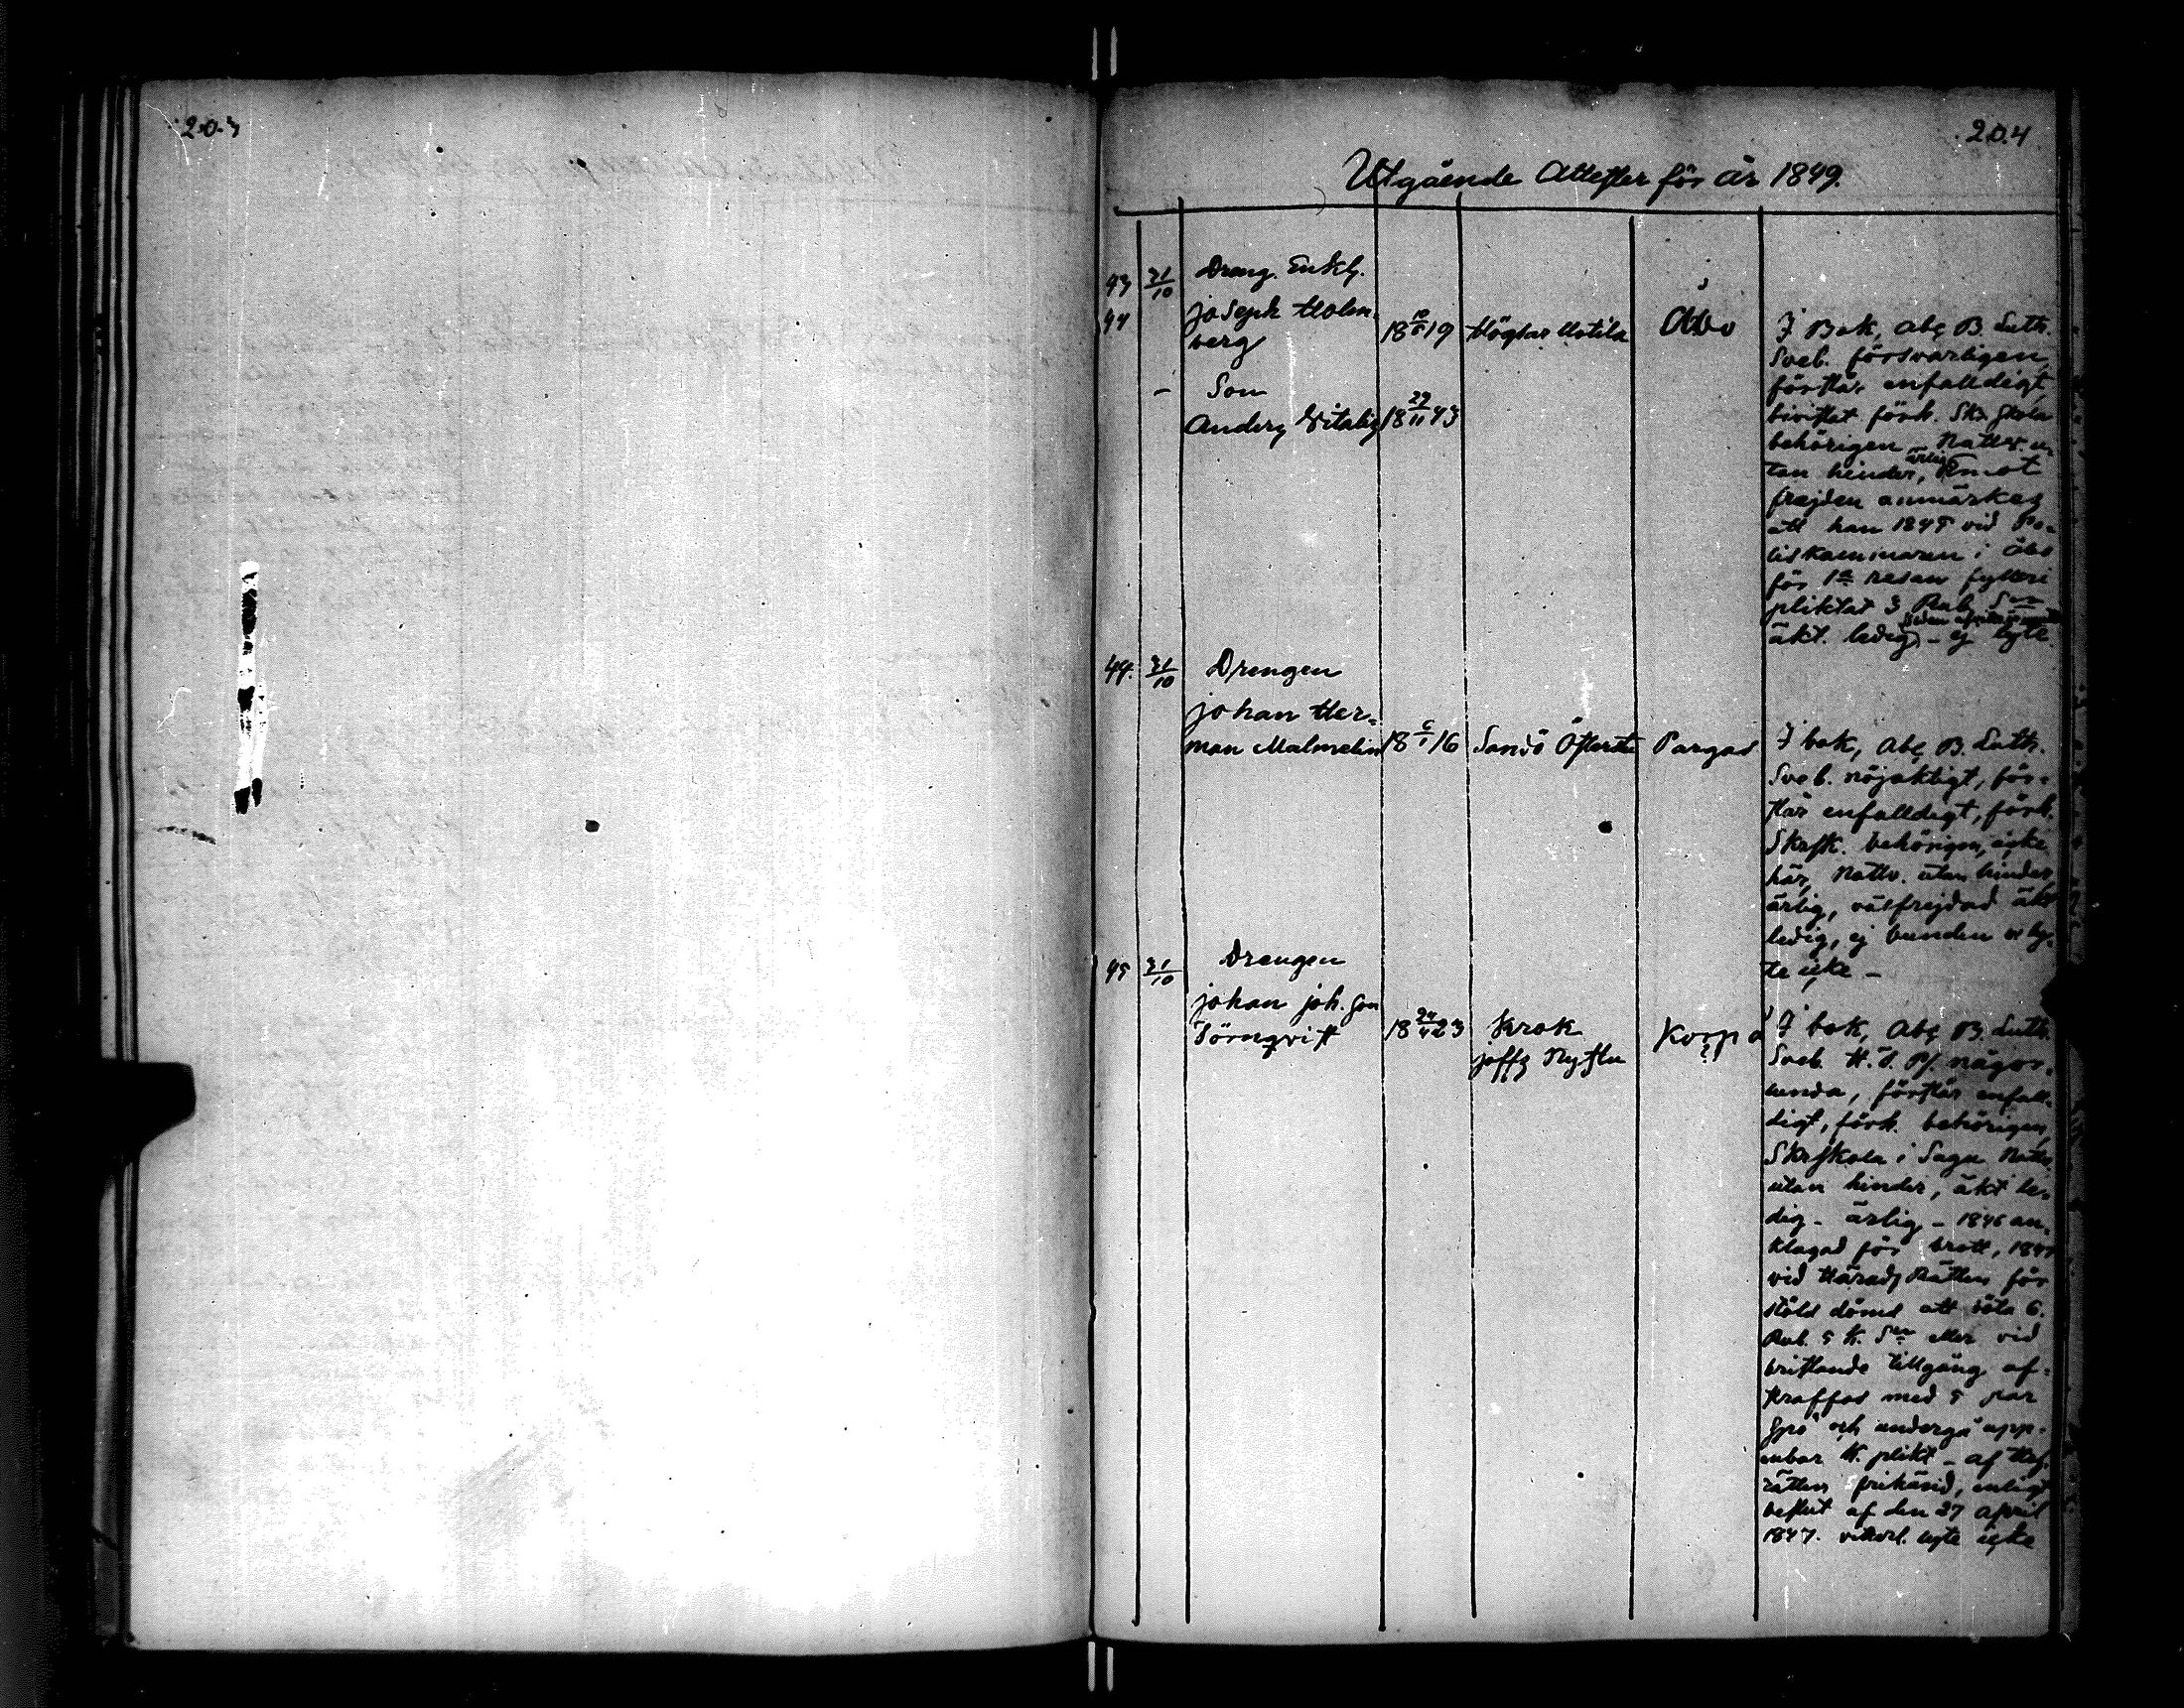 203
204
Utgående Attester för år 1849.
43 31/10 Dreng. Enkl.
44 Joseph Holm-
berg 18 10/8 19 Högsar Åbo
- Son
Anders Vitalis 18 29/11 43
I Bok, Abc B. Luth.
Sveb. försvarligen,
förstår enfalldigt,
bivistat förh. Skr. skola
behörigen - Nattv. u-
tan hinder, ärlig Emot
frejden anmärkes
att han 1845 vid Po-
liskammaren i Åbo
för 1a resan fylleri
pliktat 3 Rub. Sr
äkt. ledig - ej lyte.
44. 31/10 Drengen
Johan Her-
man Malmelin 18 6/1 16 Sandö Pargas
I bok, Abc B. Luth.
Sveb. nöjaktigt, för-
står enfalldigt, förh.
Skrsk. behörigen, icke
här, Nattv. utan hinder
ärlig, välfrejdad äkt
ledig, ej bunden o ly-
te icke -
45 31/10 Drengen
Johan Joh. Son
Törnqvist 18 24/4 23 Krok Korpo
I bok, Abc B. Luth.
Sveb. H. T. Ps. någor-
lunda, förstår enfall-
digt, förh. behörigen,
Skrskola i Sagu Nattv.
utan hinder, äkt le-
dig - ärlig - 1846 an-
klagad för brott, 1847
vid Härads Rätten för
stöld dömd att böta 6.
Rub. 5 K. Sr eller vid
bristande tillgång af-
straffas med 5 par
spö och undergå upp-
enbar K. plikt - af Hof-
rätten frikänd, enligt
beslut af den 27 April
1847. lyte icke